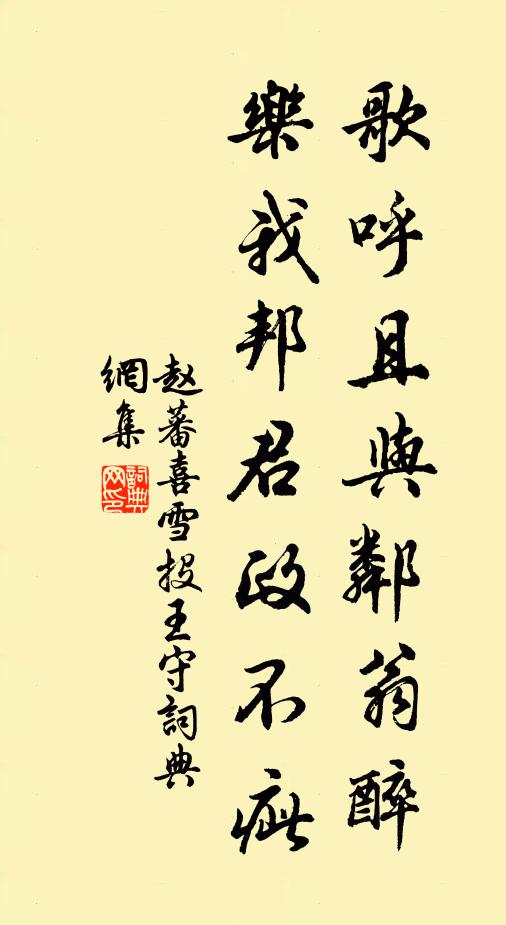 歌呼且與鄰翁醉
樂我邦君政不疵
赵蕃喜雪投王守詞典
網集
詞典
网印